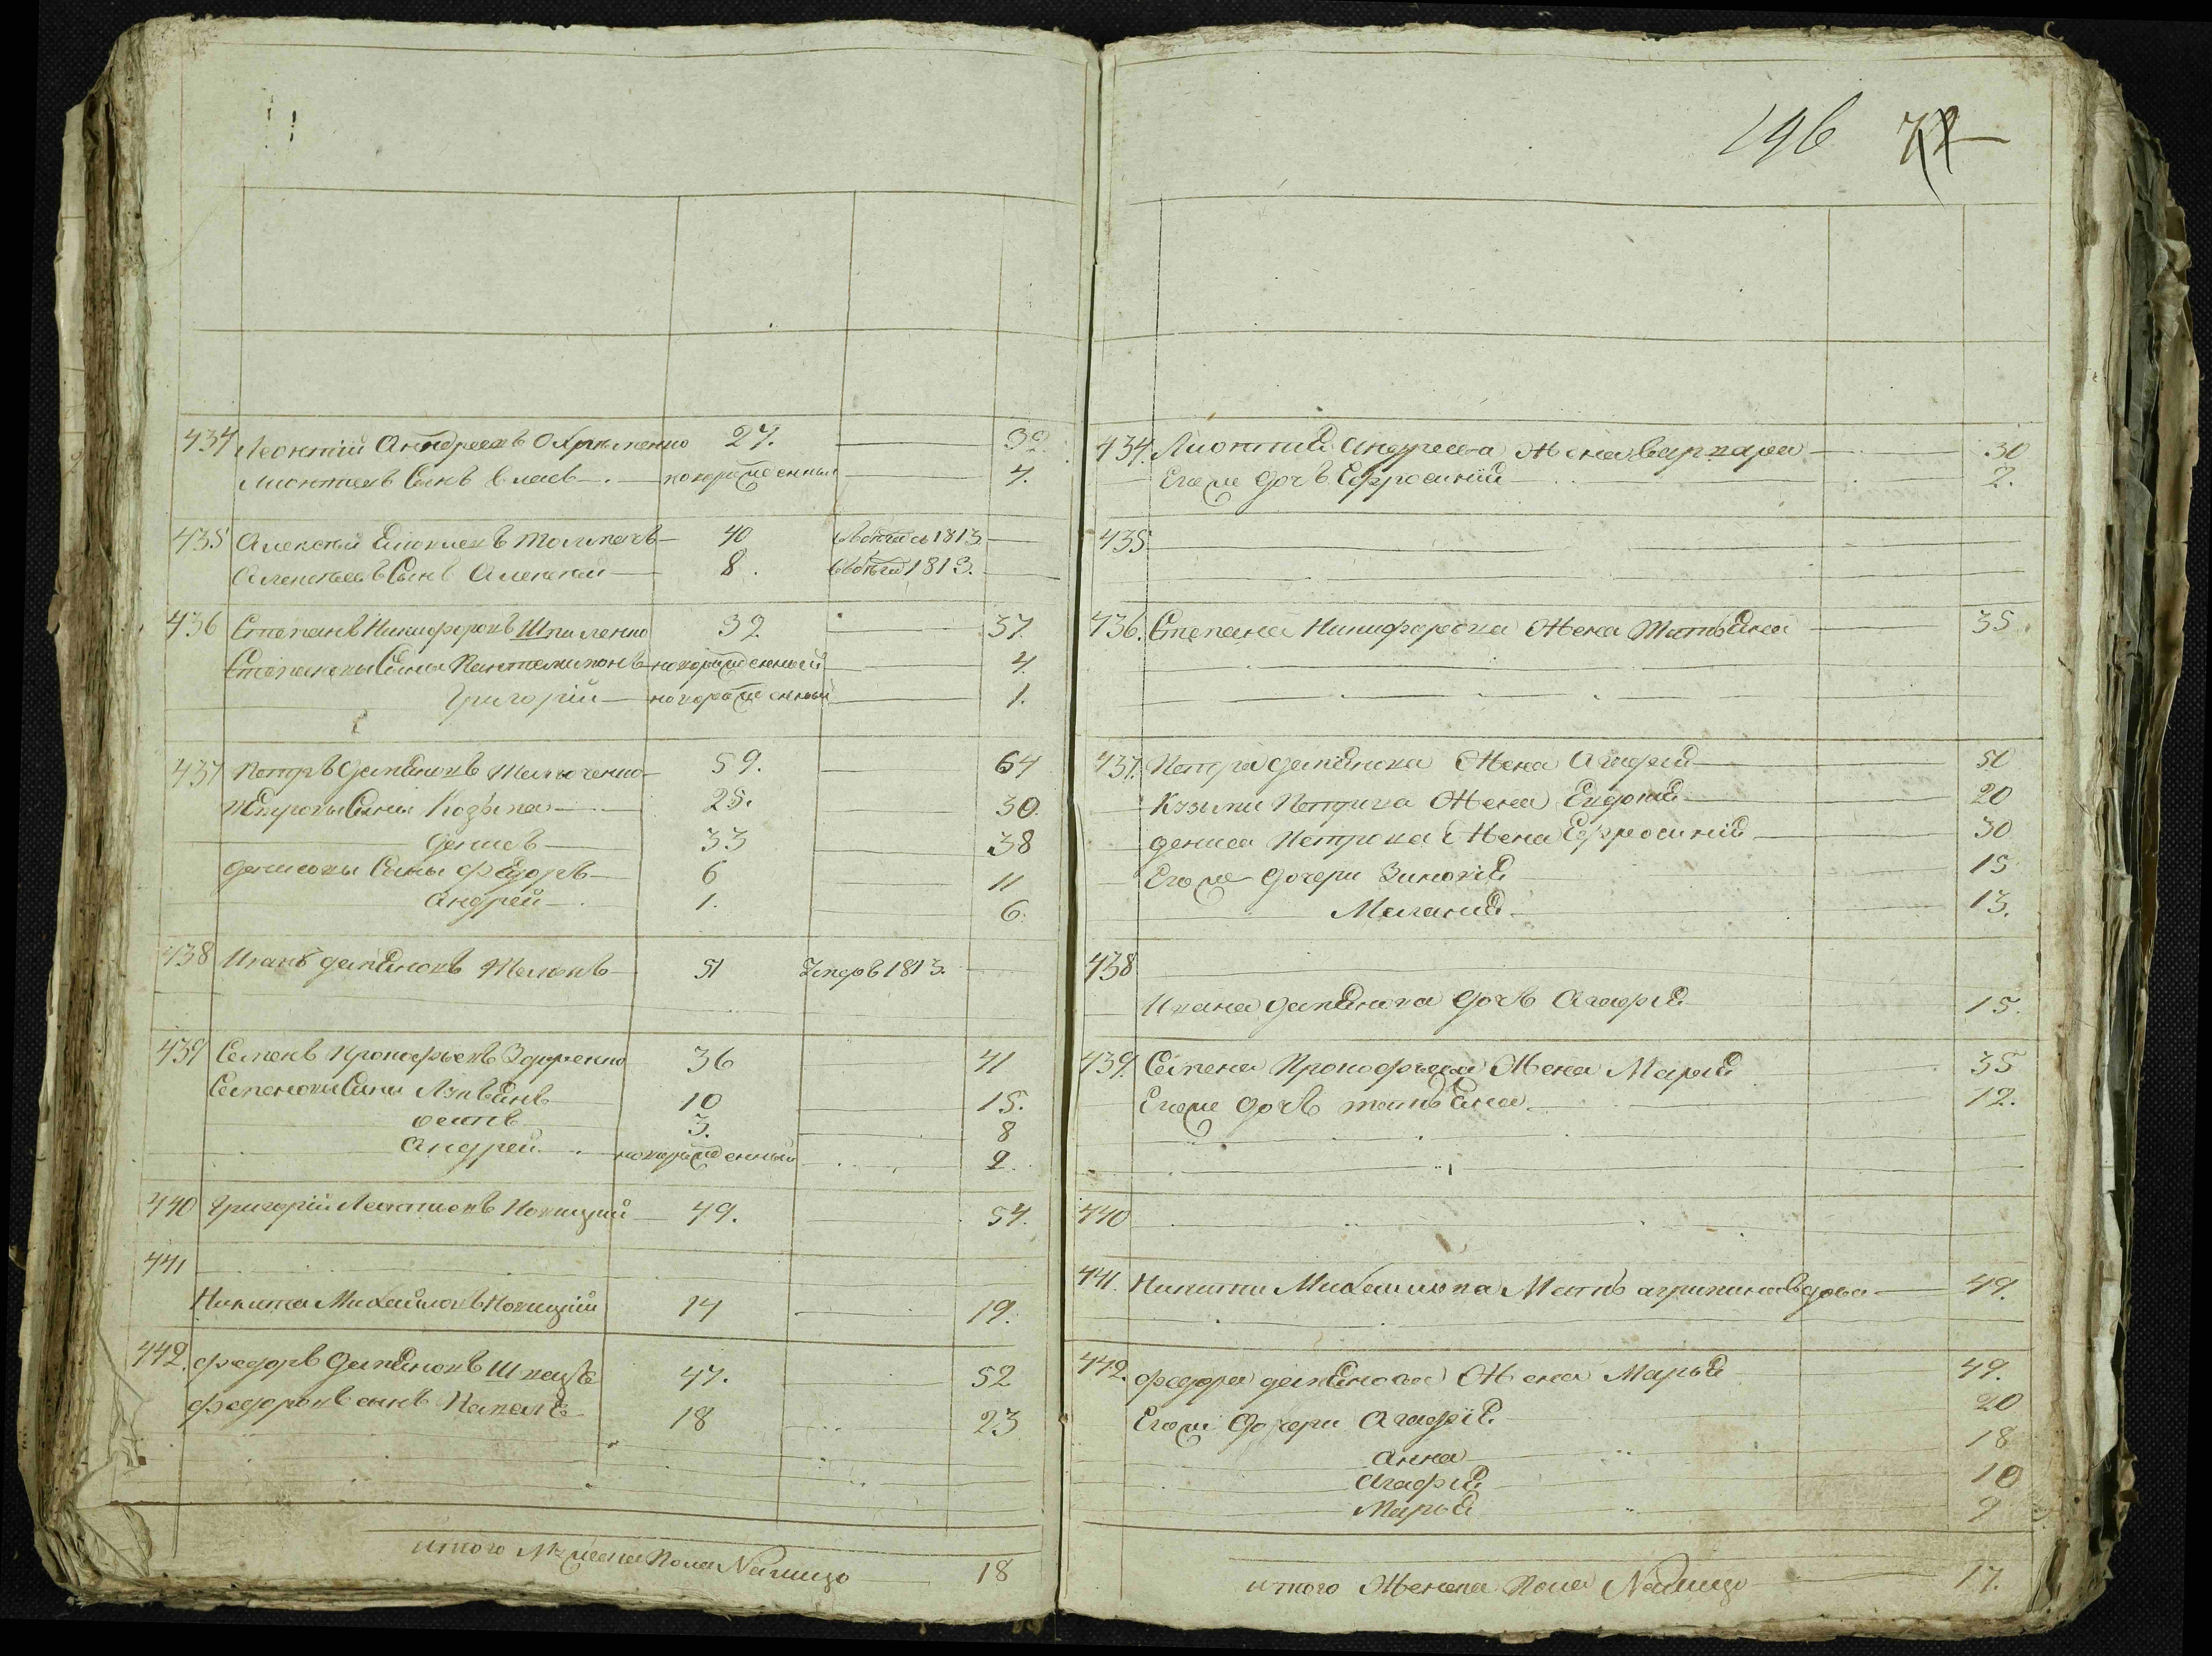 196 72
434 Леонтий Андреевъ Охрименко 27. 32.
Лионтиевъ Сынъ Власъ новорожденный 4.
435 Алексей Яковлевъ Толмачъ 40 1813
Алексеевъ Сынъ Алексей 8. 1813.
436 Степанъ Никифоровъ Шпиленко 32 37.
Степановы Сыны Пантелимонъ новорожденный 4.
Григорий новорожденный 1.
437 Петръ Демяновъ 59. 64
Петровы Сыны Козьма 25. 30.
Денисъ 33 38
Денисовы Сыны Федоръ 6 11
Андрей 1. 6.
438 Иванъ Демяновъ 51 Умеръ 1813.
439 Семенъ Прокофьевъ 36 41
Семеновы Сыны Лукьянъ 10 15.
Осипъ 3. 8
Андрей новорожденный 2.
440 Григорий Леонтиевъ Новицкий 49. 54.
441
Никита Михайловъ Новицкий 14 19.
442. Федоръ Демяновъ 47. 52
Федоровъ сынъ 18 23
итого Мужеска Пола Налицо 18
434. Лионтия Андреева Жена Варвара 30
Егоже дочь Ефросиния 2.
435
436. Степана Никифорова Жена Татьяна 35.
437. Петра Демянова Жена Агафия 50
Козьми Петрова Жена Евдокия 20
Дениса Петрова Жена Ефросиния 30
Егоже дочери Зиновия 15
Мелания 13.
438
Ивана Демянова дочь Агафия 15.
439. Семена Прокофьева Жена Мария 35
Егоже дочь Татьяна 12.
440
441. Никити Михайлова Мать агрипина вдова 49.
442. Федора Демянова Жена Марья 49.
Егоже Дочери Агафия 20
Анна 18
Агафия 10
Марья 9
итого Женска Пола Налицо 17.